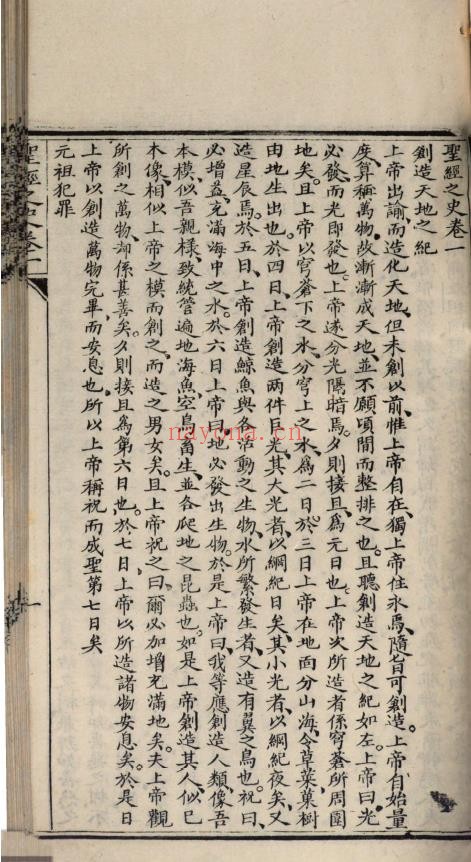 聖經之史卷一
創造天地之紀
上帝出諭而造化天地、但未創以前、惟上帝自在、獨上帝住永焉、隨旨可創造。上帝自始量
度、算稱萬物、故漸漸成天地、並不願頃間而整排之也。且聽創造天地之紀如左。上帝曰、光
必發、而光即發也。上帝遂分光陽暗焉、夕則接旦、爲元日也。上帝次所造者、係穹蒼所周圍
地矣。且上帝以穹蒼下之水、分穹上之水、爲二日。於三日上帝在地面分山海、令草菜菓樹
由地生出也。於四日、上帝創造兩件巨光、其大光者、以綱紀日矣、其小光者、以綱紀夜矣、又
造星辰焉。於五日、上帝創造鯨魚與各活動之生物、水所繁發生者、又造有翼之鳥也。祝曰、
必增益、充滿海中之水。於六日上帝曰、地必發出生物。於是上帝曰、我等應創造人類、像吾
本模、似吾親樣、致統管遍地海魚、空鳥、畜生、並各爬地之昆蟲也。如是上帝創造其人、似已
本像、相似上帝之模而創之、而造之男女矣。且上帝祝之曰、爾必加增充滿地矣。夫上帝觀
所創之萬物、却係甚善矣。夕則接旦爲第六日也。於七日、上帝以所造諸物安息矣。於是日
上帝以創造萬物完畢、而安息也。所以上帝稱祝而成聖第七日矣
元祖犯罪
nayona.cn